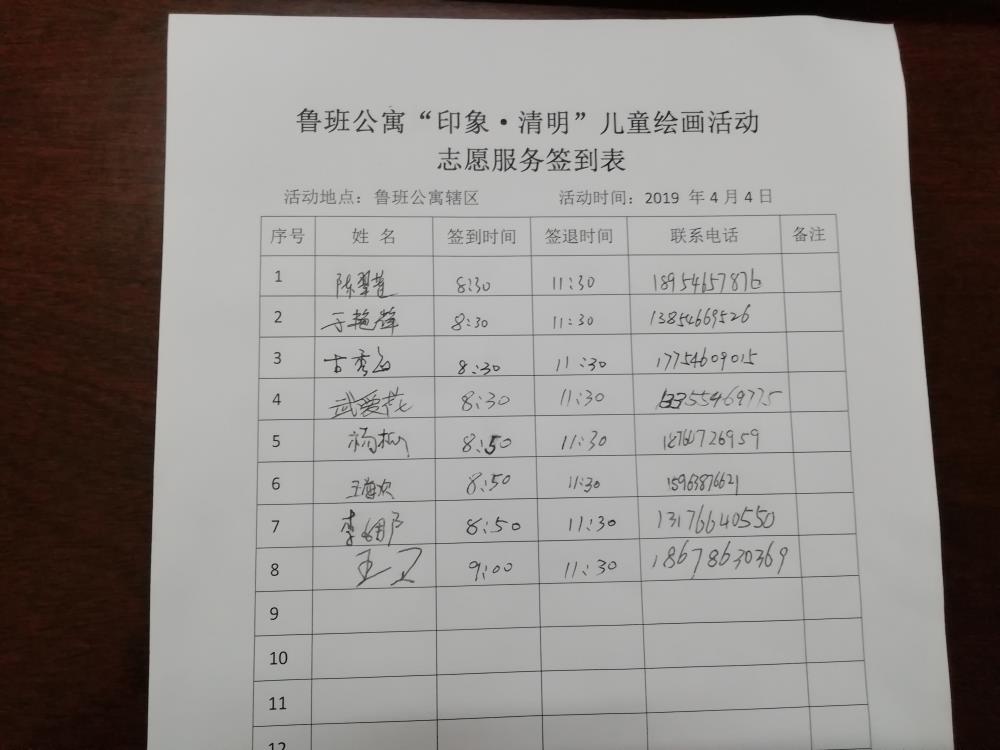 鲁班公寓“印象·清明”儿童绘画活动
志愿服务签到表
活动地点：鲁班公寓辖区 活动时间：2019 年 4 月 4 日
序号 姓 名 签到时间 签退时间 联系电话 备注
1 陈翠莲 8:30 11:30 18954657876
2 于艳辉 8:30 11:30 13854669526
3 古秀 8:30 11:30 17754609015
4 武爱花 8:30 11:30 13355469775
5 杨松 8:50 11:30 18760726959
6 王海欢 8:50 11:30 15963876621
7 李 8:50 11:30 13176640550
8 王卫 9:00 11:30 18678630369
9
10
11
12